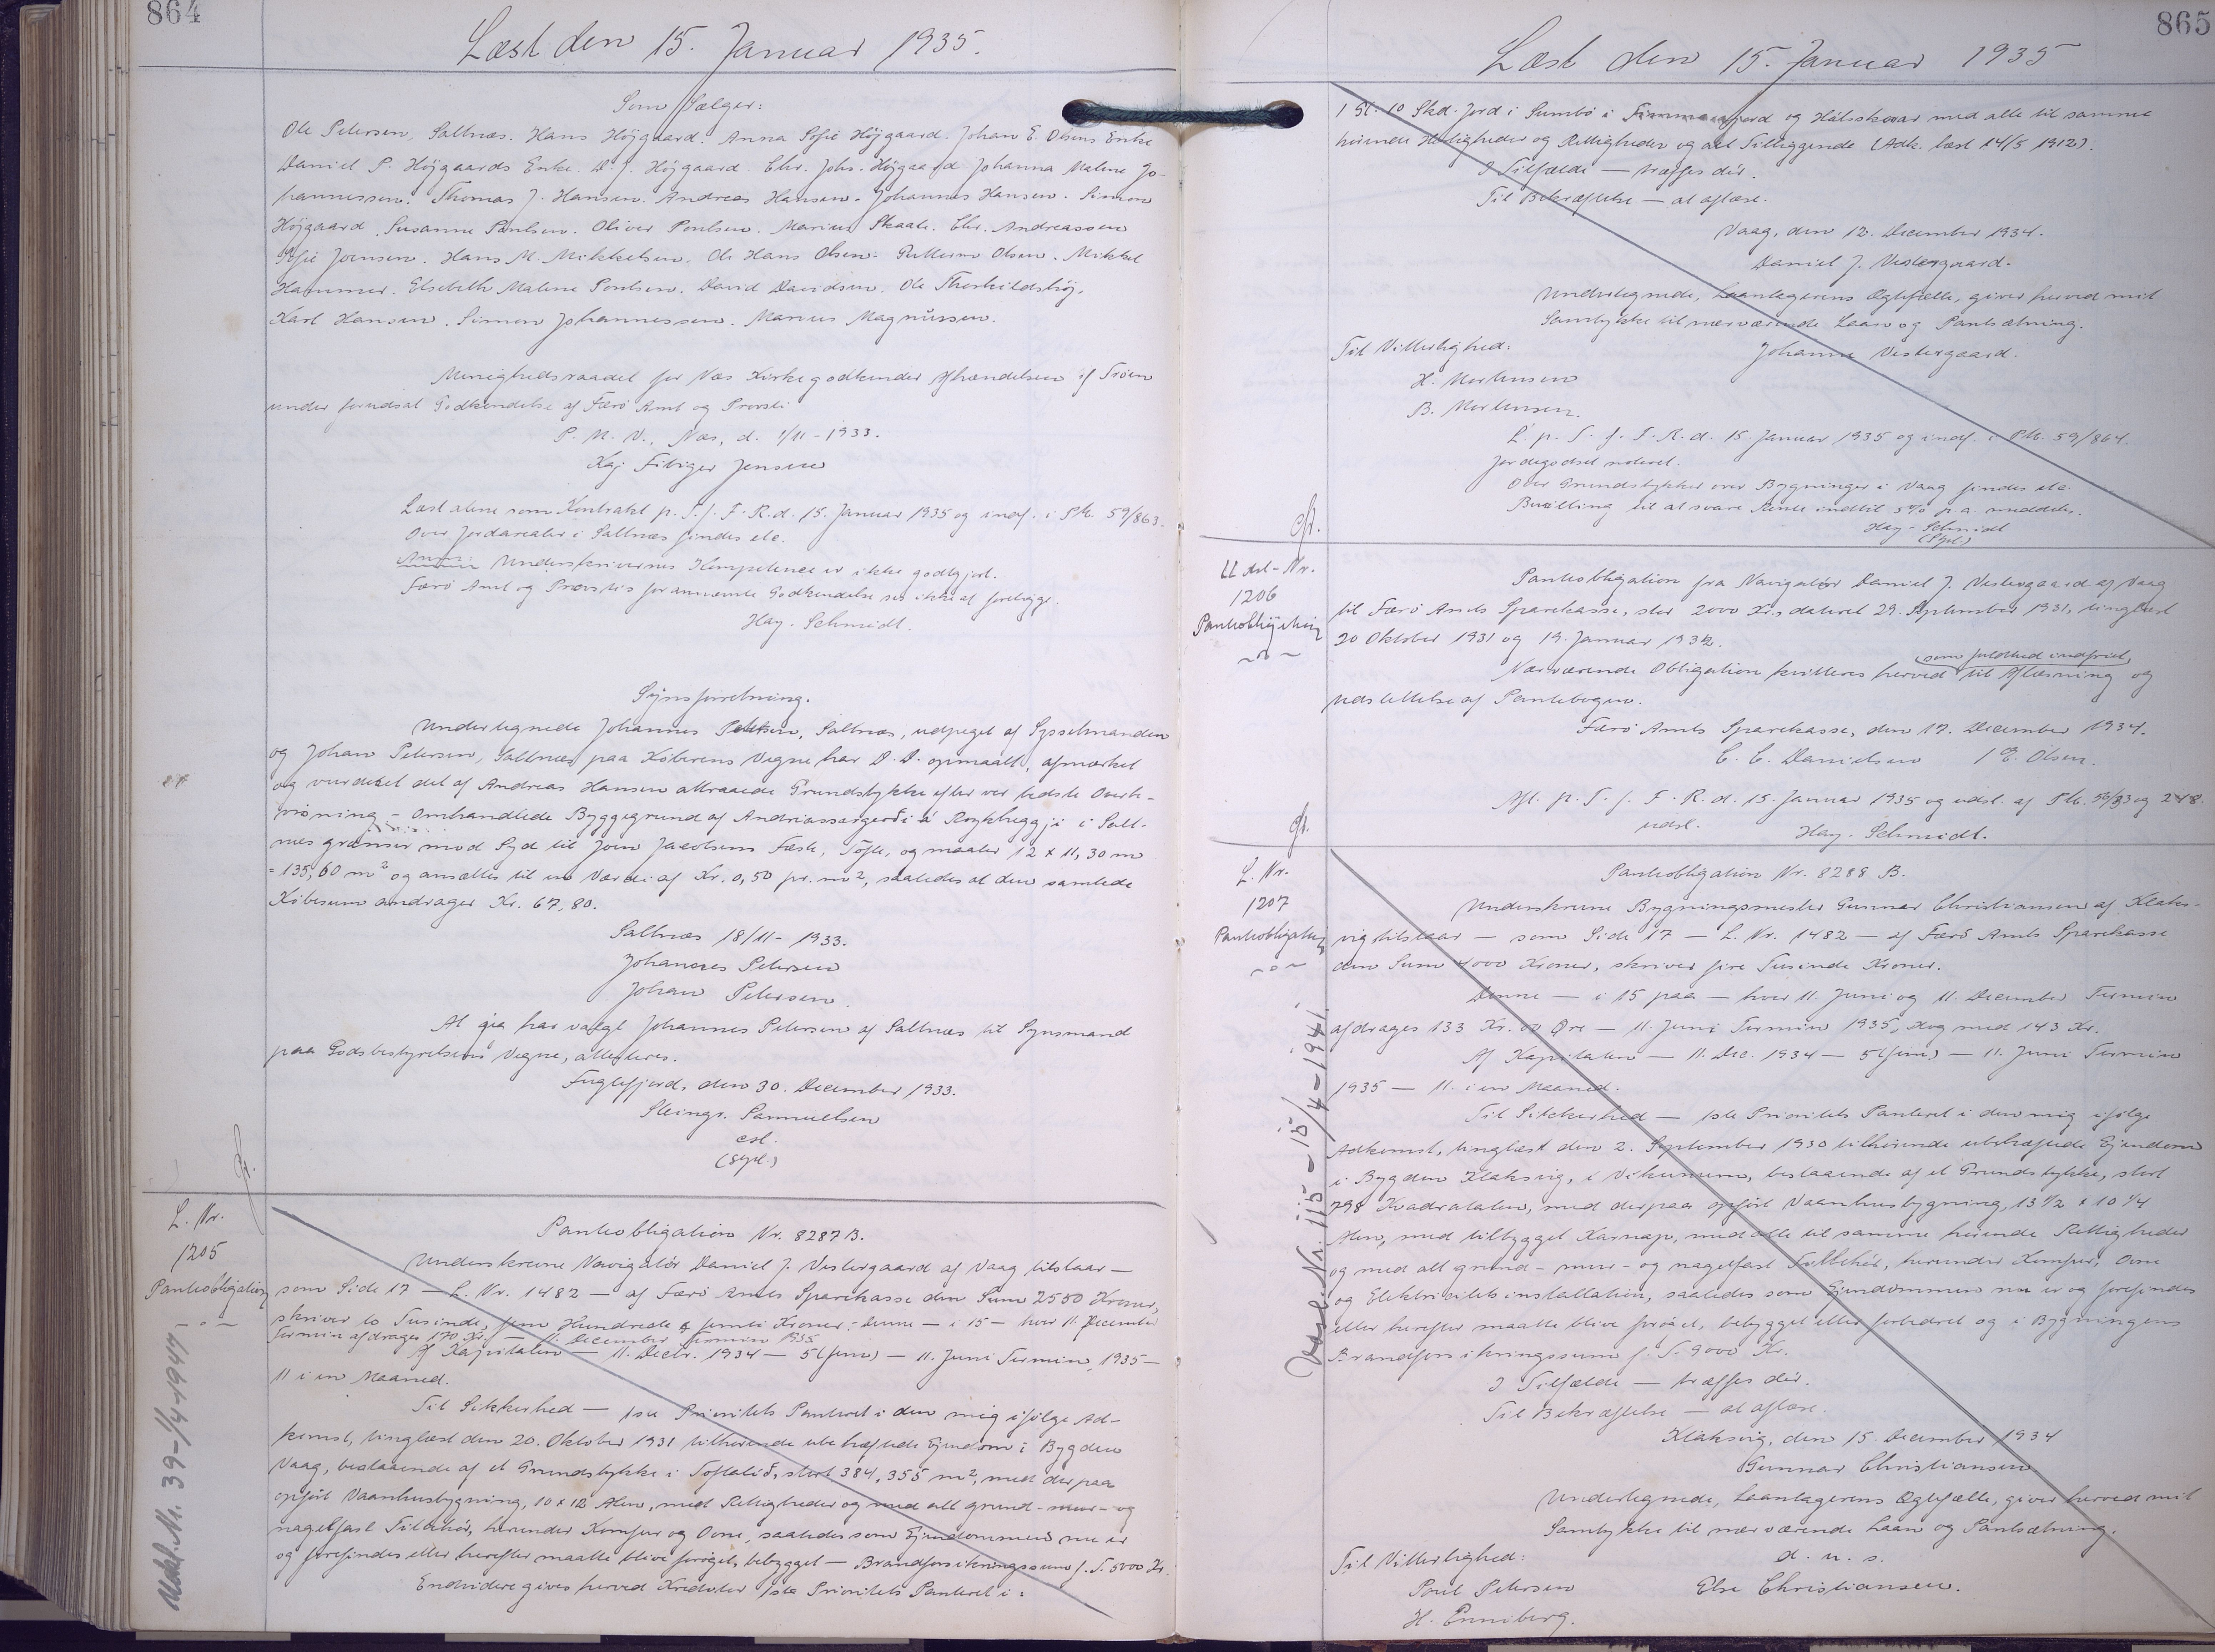 864
Læst den 15. Januar 1935.
Som Sælger:
Ole Petersen, Saltnæs. Hans Höjgaard. Anna Sofie Höjgaard. Johan E. Olsens Enke
Daniel P. Höjgaards Enke. D. J. Höjgaard. Chr. Johs. Höjgaard. Johanna Malene Jo-
hannessen. Thomas J. Hansen. Andreas Hansen. Johannes Hansen. Simon
Höjgaard. Susanne Poulsen. Oliver Poulsen. Marius Skaale. Chr. Andreassen
Sofie Joensen. Hans M. Mikkelsen. Ole Hans Olsen. Olsen. Mikkel
Hammer. Elsebeth Malene Poulsen. David Davidsen. Ole Thorkildshöj.
Karl Hansen. Simon Johannessen. Marius Magnussen.
Menighedsraadet for Næs Kirke godkender Afhændelsen af
under forudsat Godkendelse af Færö Amt og Provsti
P. M. V., Næs, d. 1/11-1933.
Kaj Fibiger Jensen
Læst alene som Kontrakt p. T. f. F. R. d. 15. Januar 1935 og indf. i Pb. 59/863.
Over Jordarealer i Saltnæs findes ele.
Anm: Underskrivernes Kompetence er ikke godtgjort.
Færö Amt og Provstis forannævnte Godkendelse ses ikke at foreligge.
Hay-Schmidt.
Synsforretning.
Undertegnede Johannes Petersen, Saltnæs, udpeget af Sysselmanden
og Johan Petersen, Saltnæs paa Köberens Vegne har D. D. opmaalt, afmærket
og vurderet det af Andreas Hansen attraaede Grundstykke efter vor bedste Overbe-
visning - Omhandlede Byggegrund af Andriassargerði á Roykheyggji i Salt-
nes grænser mod Syd til Joen Jacobsens Fæste, Tofte, og maaler 12 x 11,30 m
= 135,60 m² og ansættes til en Værdi af Kr. 0,50 pr. m², saaledes at den samlede
Köbesum andrager Kr. 67,80.
Saltnæs 18/11-1933.
Johannes Petersen
Johan Petersen.
At jeg har valgt Johannes Petersen af Saltnæs til Synsmand
paa Godsbestyrelsens Vegne, attesteres.
Fuglefjord, den 30. December 1933.
Steingr. Samuelsen
cst.
(Stpl.)
L. Nr.
1205
Panteobligation
Pantobligation Nr. 8287 B.
Underskrevne Navigatör Daniel J. Vestergaard af Vaag tilstaar —
som Side 17 — L. Nr. 1482 — af Færö Amts Sparekasse den Sum 2550 Kroner,
skriver to Tusinde, fem Hundrede & femti Kroner. - Denne — i 15 — hver 11. December
Termin afdrages 170 Kr. — 11. December Termin 1935
Af Kapitalen — 11. Decbr. 1934 — 5 (fem) — 11. Juni Termin 1935 —
11 i en Maaned.
Til Sikkerhed — 1ste Prioritets Panteret i den mig ifölge Ad-
komst, tinglæst den 20. Oktober 1931 tilhörende ubehæftede Ejendom i Bygden
Vaag, bestaaende af et Grundstykke i Toftalið, stort 384,355 m², med derpaa
opfört Vaanhusbygning, 10 x 12 Alen, med Rettigheder og med alt grund- mur- og
nagelfast Tilbehör, herunder Komfur og Ovne, saaledes som Ejendommen nu er
og forefindes eller herefter maatte blive foröget, bebygget — Brandforsikringssum f. T. 5000 Kr.
Endvidere gives herved Kreditor 1ste Prioritets Panteret i:
Udsl. Nr. 39-1/4-1947
865
Læst den 15. Januar 1935
1 Gl. 10 Skd. Jord i Sumbö i og Hálsskorar med alle til samme
hörende Herligheder og Rettigheder og alt Tilliggende (Adk. læst 14/5 1912).
I Tilfælde — træffes dér.
Til Bekræftelse — at aflæse.
Vaag, den 12. December 1934.
Daniel J. Vestergaard.
Undertegnede, Laantagerens Ægtefælle, giver herved mit
Samtykke til nærværende Laan og Pantsætning.
Til Vitterlighed:
Johanne Vestergaard.
H. Mortensen
B. Mortensen.
L. p. T. f. F. R. d. 15. Januar 1935 og indf. i Pb. 59/864.
Jordegodset noteret.
Over Grundstykker over Bygninger i Vaag findes ele.
Bevilling til at svare Rente indtil 5% p. a. meddeles.
Hay-Schmidt
(Stpl.)
Ll Asl-Nr.
1206
Panteobligation
Panteobligation fra Navigatör Daniel J. Vestergaard af Vaag
til Færö Amts Sparekasse, stor 2000 Kr., dateret 29. September 1931, tinglæst
20 Oktober 1931 og 19. Januar 1932.
Nærværende Obligation kvitteres herved (som fuldtud indfriet) til Aflæsning og
Udslettelse af Pantebogen.
Færö Amts Sparekasse, den 17. December 1934.
C. C. Danielsen / E. Olsen.
Afl. p. T. f. F. R. d. 15. Januar 1935 og udsl. af Pb. 56/83 og 248.
udsl.
Hay-Schmidt.
L. Nr.
1207
Panteobligation
Panteobligation Nr. 8288 B.
Underskrevne Bygningsmester Gunnar Christiansen af Klaks-
vig tilstaar — som Side 17 — L. Nr. 1482 — af Færö Amts Sparekasse
den Sum 4000 Kroner, skriver fire Tusinde Kroner.
Denne — i 15 paa — hver 11. Juni og 11. December Termin
afdrages 133 Kr. 00 Øre — 11. Juni Termin 1935, dog med 143 Kr.
Af Kapitalen — 11. Dec. 1934 — 5 (fem) — 11. Juni Termin
1935 — 11. i en Maaned.
Til Sikkerhed — 1ste Prioritets Panteret i den mig ifölge
Adkomst, tinglæst den 2. September 1930 tilhörende ubehæftede Ejendom
i Bygden Klaksvig, i Vikunum, bestaaende af et Grundstykke, stort
798 Kvadratalen, med derpaa opfört Vaanhusbygning, 13 1/2 x 10 1/4
Alen, med tilbygget Karnap, med alle til samme hörende Rettigheder
og med alt grund- mur- og nagelfast Tilbehör, herunder Komfur, Ovne
og Elektricitetsinstallation, saaledes som Ejendommen nu er og forefindes
eller herefter maatte blive foröget, bebygget eller forbedret og i Bygningens
Brandforsikringssum f. T. 9000 Kr.
I Tilfælde — træffes dér.
Til Bekræftelse — at aflæse.
Klaksvig, den 15. December 1934
Gunnar Christiansen
Undertegnede, Laantagerens Ægtefælle, giver herved mit
Samtykke til nærværende Laan og Pantsætning.
Til Vitterlighed:
d. u. s.
Poul Petersen
Else Christiansen.
H. Enniberg.
Udsl. Nr. 115-15/4-1941.